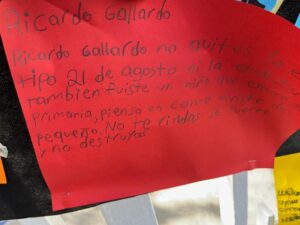 Ricardo Gallardo
Ricardo Gallardo no quites la e
tipo 21 de agosto ni la
tambien fuiste un niño que
primaria, piensa en como eras de
pequeño. No te rindas se fuerte
y no destruyas